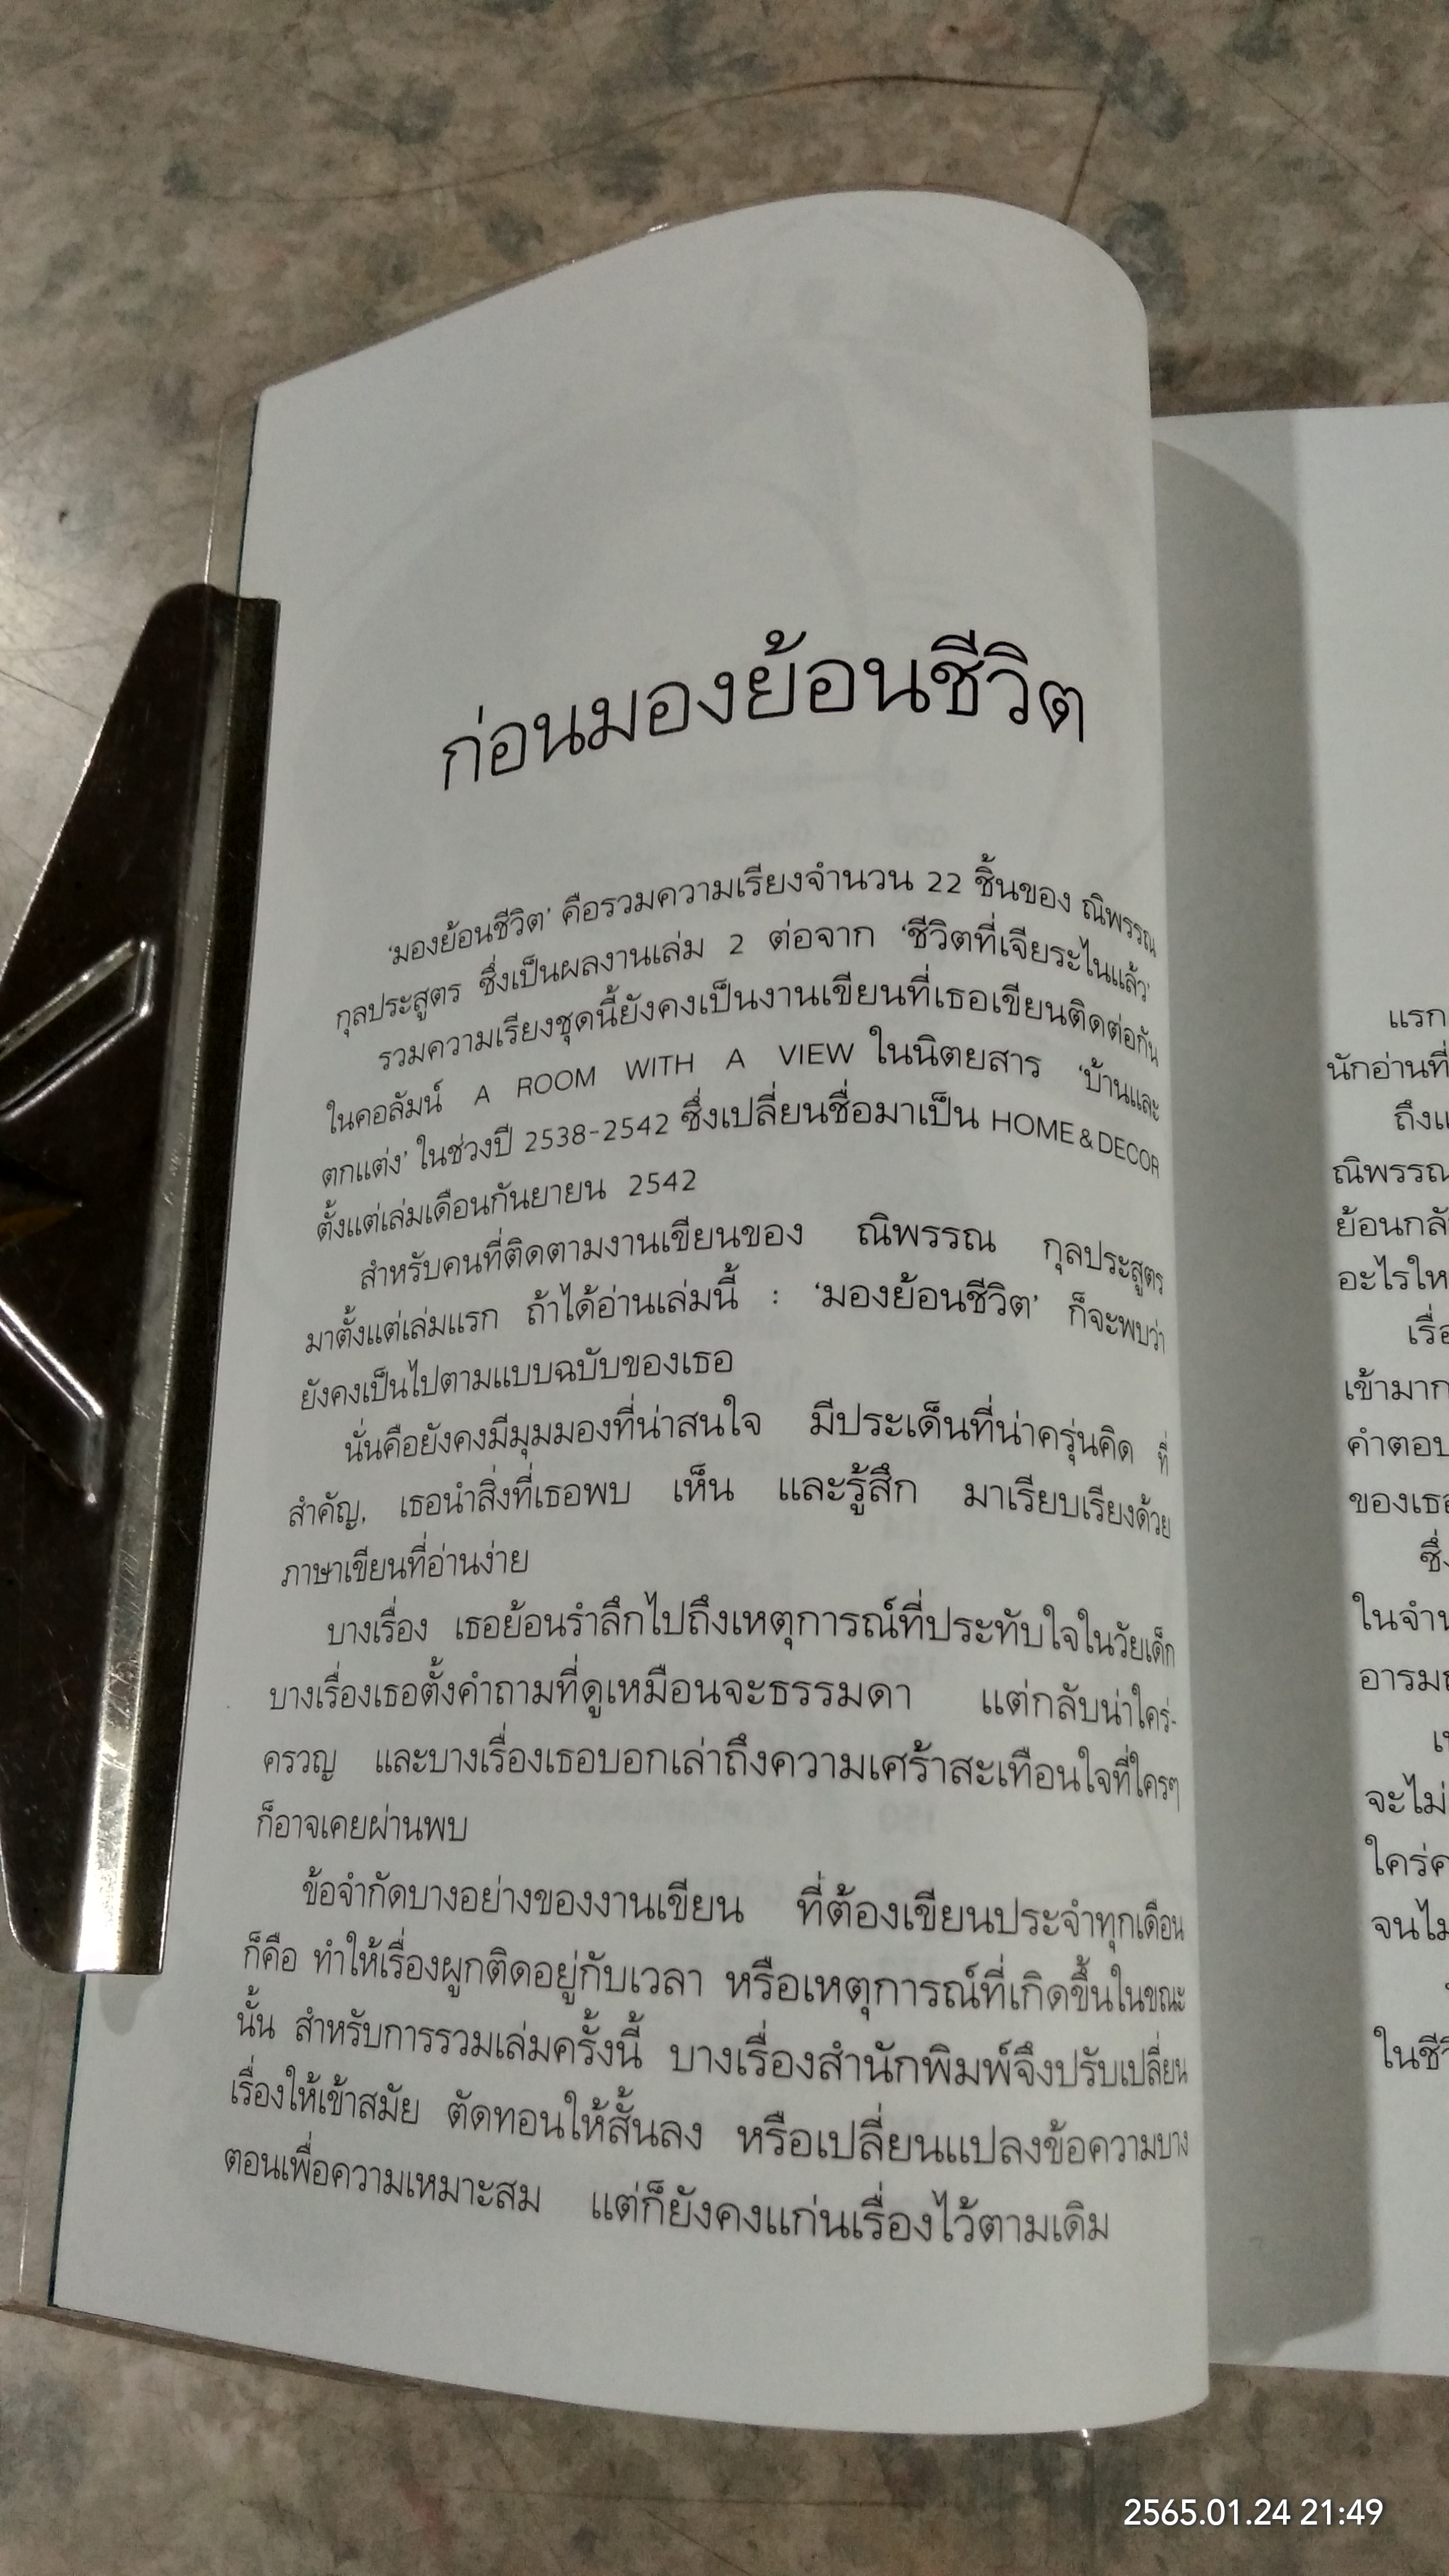 ก่อนมองย้อนชีวิต
'มองย้อนชีวิต' คือรวมความเรียงจำนวน 22 ชิ้นของ ณิพรรณ
กุลประสูตร ซึ่งเป็นผลงานเล่ม 2 ต่อจาก 'ชีวิตที่เจียระไนแล้ว'
รวมความเรียงชุดนี้ยังคงเป็นงานเขียนที่เธอเขียนติดต่อกัน
ในคอลัมน์ A ROOM WITH A VIEW ในนิตยสาร 'บ้านและ
ตกแต่ง' ในช่วงปี 2538-2542 ซึ่งเปลี่ยนชื่อมาเป็น HOME & DECOR
ตั้งแต่เล่มเดือนกันยายน 2542
สำหรับคนที่ติดตามงานเขียนของ ณิพรรณ กุลประสูตร
มาตั้งแต่เล่มแรก ถ้าได้อ่านเล่มนี้ : 'มองย้อนชีวิต' ก็จะพบว่า
ยังคงเป็นไปตามแบบฉบับของเธอ
นั่นคือยังคงมีมุมมองที่น่าสนใจ มีประเด็นที่น่าครุ่นคิด ที่
สำคัญ, เธอนำสิ่งที่เธอพบ เห็น และรู้สึก มาเรียบเรียงด้วย
ภาษาเขียนที่อ่านง่าย
บางเรื่อง เธอย้อนรำลึกไปถึงเหตุการณ์ที่ประทับใจในวัยเด็ก
บางเรื่องเธอตั้งคำถามที่ดูเหมือนจะธรรมดา แต่กลับน่าใคร่-
ครวญ และบางเรื่องเธอบอกเล่าถึงความเศร้าสะเทือนใจที่ใครๆ
ก็อาจเคยผ่านพบ
ข้อจำกัดบางอย่างของงานเขียน ที่ต้องเขียนประจำทุกเดือน
ก็คือ ทำให้เรื่องผูกติดอยู่กับเวลา หรือเหตุการณ์ที่เกิดขึ้นในขณะ
นั้น สำหรับการรวมเล่มครั้งนี้ บางเรื่องสำนักพิมพ์จึงปรับเปลี่ยน
เรื่องให้เข้าสมัย ตัดทอนให้สั้นลง หรือเปลี่ยนแปลงข้อความบาง
ตอนเพื่อความเหมาะสม แต่ก็ยังคงแก่นเรื่องไว้ตามเดิม
แรก
นักอ่านที่
ณิพรรณ
เข้ามา
คำตอบ
ของเธอ
จะไม่
2565.01.24 21:49